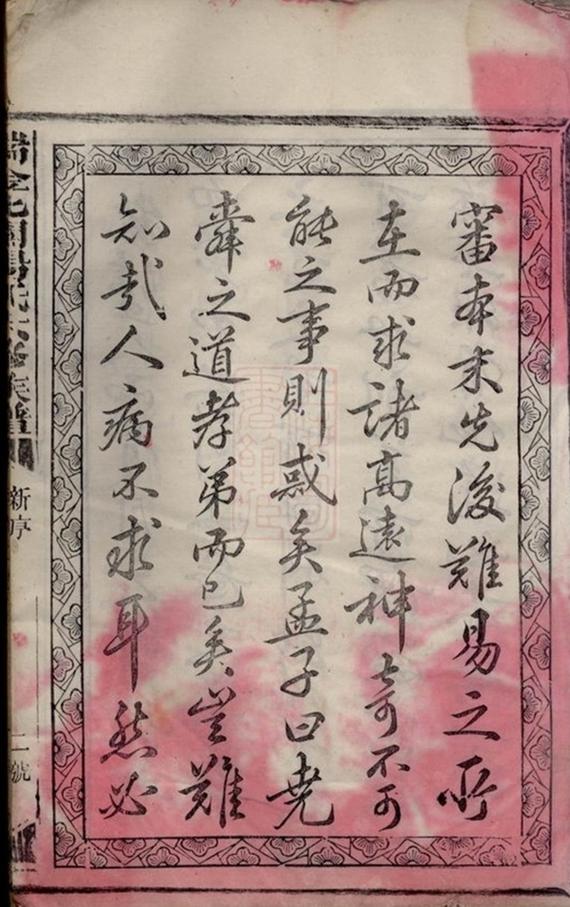 審本末先後難易之所
在而求諸高遠神奇不可
能之事則惑矣孟子曰堯
舜之道孝弟而已矣豈難
知哉人病不求耳然必
新序
二號